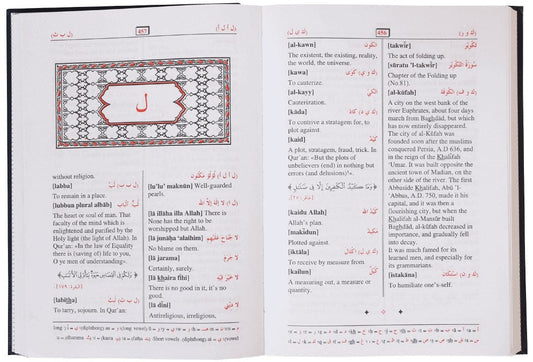 (ل ب ث)
457
(ل أ ل أ)
ل
without religion.
[labba] (ل ب ب) لَبَّ
To remain in a place.
[labbun plural albāb] لُبٌّ ج أَلْبَاب
The heart or soul of man. That
faculty of the mind which is
enlightened and purified by the
Holy light (the light of Allah). In
Qur'an: «In the law of Equality
there is (saving of) life to you,
O ye men of understanding».
[labitha] (ل ب ث) لَبِثَ
To tarry, sojourn. In Qur'an:
(ل أ ل أ) لُؤْلُؤٌ مَكْنُون
[lu'lu' maknūn] Well-guarded
pearls.
لا إِلٰهَ إِلَّا اللّٰه
[lā illāha illa Allah] There is
None has the right to be
worshipped but Allah.
[lā junāḥa 'alaihim]
No blame on them.
[lā jarama] لا جَرَمَ
Certainly, surely.
[lā khaira fihi] لا خَيْرَ فِيهِ
There is no good in it, it's no
good.
[lā dīni] لا دِينِي
Antireligious, irreligious,
(ك ي ل)
456
(ك و ر)
[al-kawn] الكَوْن
The existent, the existing, reality,
the world, the universe.
[kawa] (ك و ي) كَوَى
To cauterize.
[al-kayy] الكَيّ
Cauterization.
[kāda] (ك ي د) كَادَ
To contrive a stratagem for, to
plot against.
[kaid] كَيْد
A plot, stratagem, fraud, trick. In
Qur'an: «But the plots of
unbelievers (end) in nothing but
errors (and delusions)!».
﴿وَمَا كَيْدُ الْكَافِرِينَ إِلَّا فِي ضَلَالٍ﴾
[kaidu Allah] كَيْدُ اللّٰه
Allah's plan.
[makīdun] مَكِيد
Plotted against.
[iktāla] (ك ي ل) اكْتَالَ
To receive by measure from
[kailun] كَيْل
A measuring out, a measure or
quantity.
[takwīr] تَكْوِير
The act of folding up.
[sūratu 'l-takwīr] سُورَةُ التَّكْوِير
Chapter of the Folding up
(No.81).
[al-kūfah] (ك و ف) الكُوفَة
A city on the west bank of the
river Euphrates, about four days
march from Baghdād, but which
has now entirely disappeared.
The city of al-Kūfah was
founded soon after the muslims
conquered Persia, A.D 636, and
in the reign of the Khalīfah
'Umar. It was built opposite the
ancient town of Madian, on the
other side of the river. The first
Abbaside Khalīfah, Abū 'l-
Abbas, A.D 750, made it his
capital, and it was then a
flourishing city, but when the
Khalīfah al-Mansūr built
Baghdad, al-kūfah decreased in
importance, and gradually fell
into decay.
It was much famed for its
learned men, and especially for
its grammarians.
[istakāna] (ك ي ن) اسْتَكَانَ
To humiliate one's self.